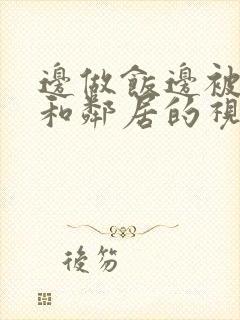 邊做飯邊被
和鄰居的視
後芬